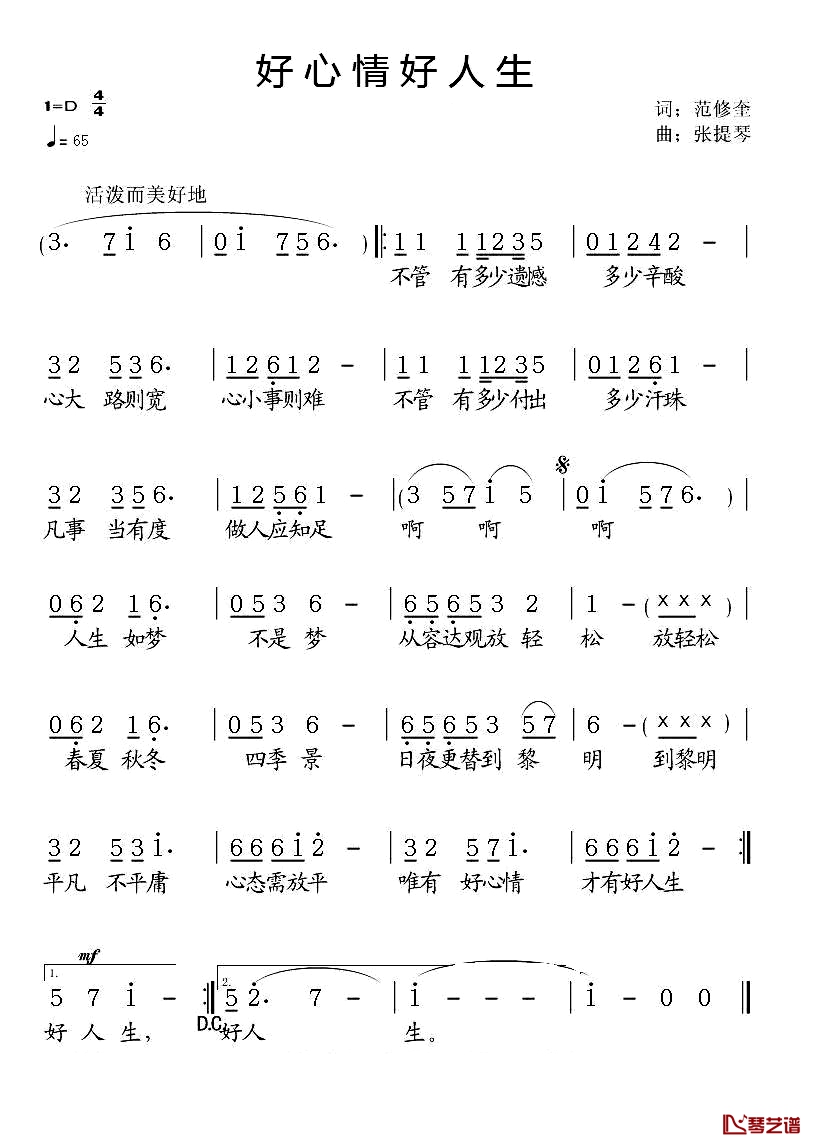 好心情好人生
1=D 4/4
词；范修奎
♩= 65
曲；张提琴
活泼而美好地
(3. 7i 6 | 0i 756. ) ‖: 11 11235 | 01242 – |
不管 有多少遗憾 多少辛酸
32 536. | 12612 – | 11 11235 | 01261 – |
心大 路则宽 心小事则难 不管 有多少付出 多少汗珠
32 356. | 12561 – | (3 57i 5 | 0i 576. ) |
凡事 当有度 做人应知足 啊 啊 啊
062 16. | 053 6 – | 65653 2 | 1 – (x x x) |
人生 如梦 不是 梦 从容达观放 轻 松 放轻松
062 16. | 053 6 – | 65653 57 | 6 – (x x x) |
春夏 秋冬 四季 景 日夜更替到 黎 明 到黎明
32 53i. | 666i2 – | 32 57i. | 666i2 – :‖
平凡 不平庸 心态需放平 唯有 好心情 才有好人生
mf
1. 2.
5 7 i – :‖ 52. 7 – | i – – – | i – 0 0 ‖
D.C.
好 人 生， 好人 生。
琴艺谱